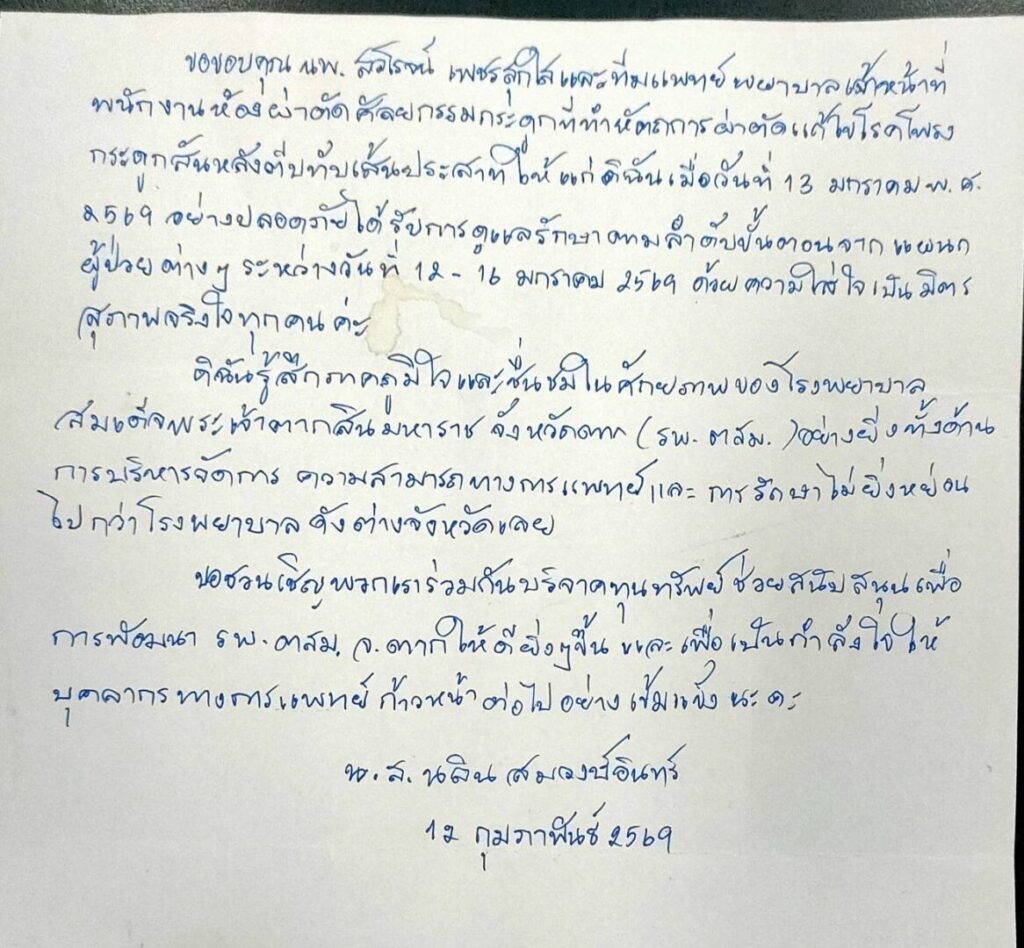 ขอขอบคุณ นพ. สวิโรจน์ เพชรสุกใส และทีมแพทย์พยาบาลเจ้าหน้าที่
พนักงานห้องผ่าตัดศัลยกรรมกระดูกที่ทำหัตถการผ่าตัดแก้ไขโรคโพรง
กระดูกสันหลังตีบทับเส้นประสาทให้แก่ดิฉันเมื่อวันที่ 13 มกราคม พ.ศ.
2569 อย่างปลอดภัยได้รับการดูแลรักษาตามลำดับขั้นตอนจากแผนก
ผู้ป่วยต่างๆ ระหว่างวันที่ 12 - 16 มกราคม 2569 ด้วยความใส่ใจเป็นมิตร
สุภาพจริงใจทุกคน ค่ะ
ดิฉันรู้สึกภาคภูมิใจและชื่นชมในศักยภาพของโรงพยาบาล
สมเด็จพระเจ้าตากสินมหาราช จังหวัดตาก (รพ. ตสม.) อย่างยิ่งทั้งด้าน
การบริหารจัดการ ความสามารถทางการแพทย์และการรักษาไม่ยิ่งหย่อน
ไปกว่าโรงพยาบาลดังต่างจังหวัดเลย
ขอชวนเชิญพวกเราร่วมกันบริจาคทุนทรัพย์ช่วยสนับสนุนเพื่อ
การพัฒนา รพ. ตสม. จ.ตากให้ดียิ่งๆขึ้น และเพื่อเป็นกำลังใจให้
บุคลากรทางการแพทย์ก้าวหน้าต่อไปอย่างเข้มแข็งนะคะ
น.ส. นลิน สมวงษ์อินทร์
12 กุมภาพันธ์ 2569